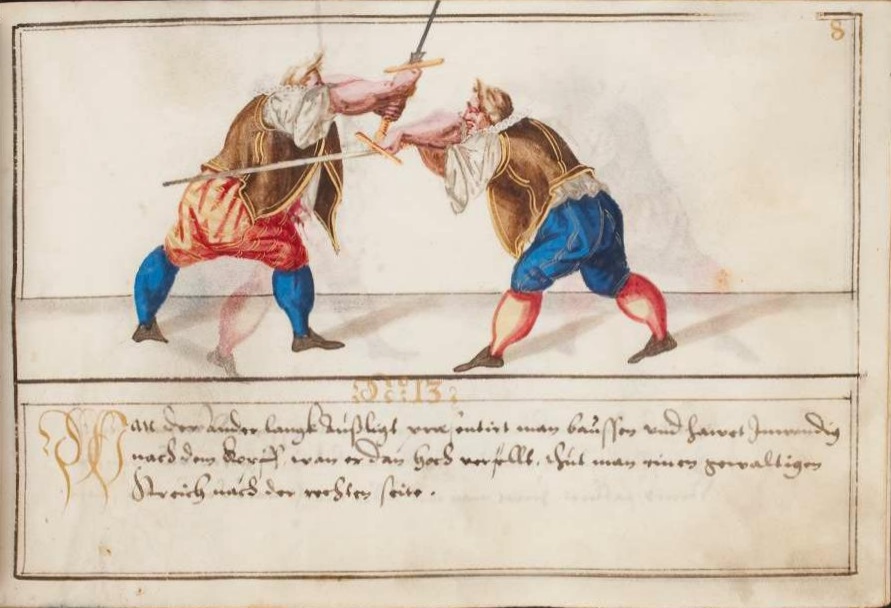 8
No: 13:
Wan der ander langk außligt presentirt man baussen und hawet Inwendig
nach dem Kopff, wan er dan hoch verfellt, thut man einen gewaltigen
streich nach der rechten seite.